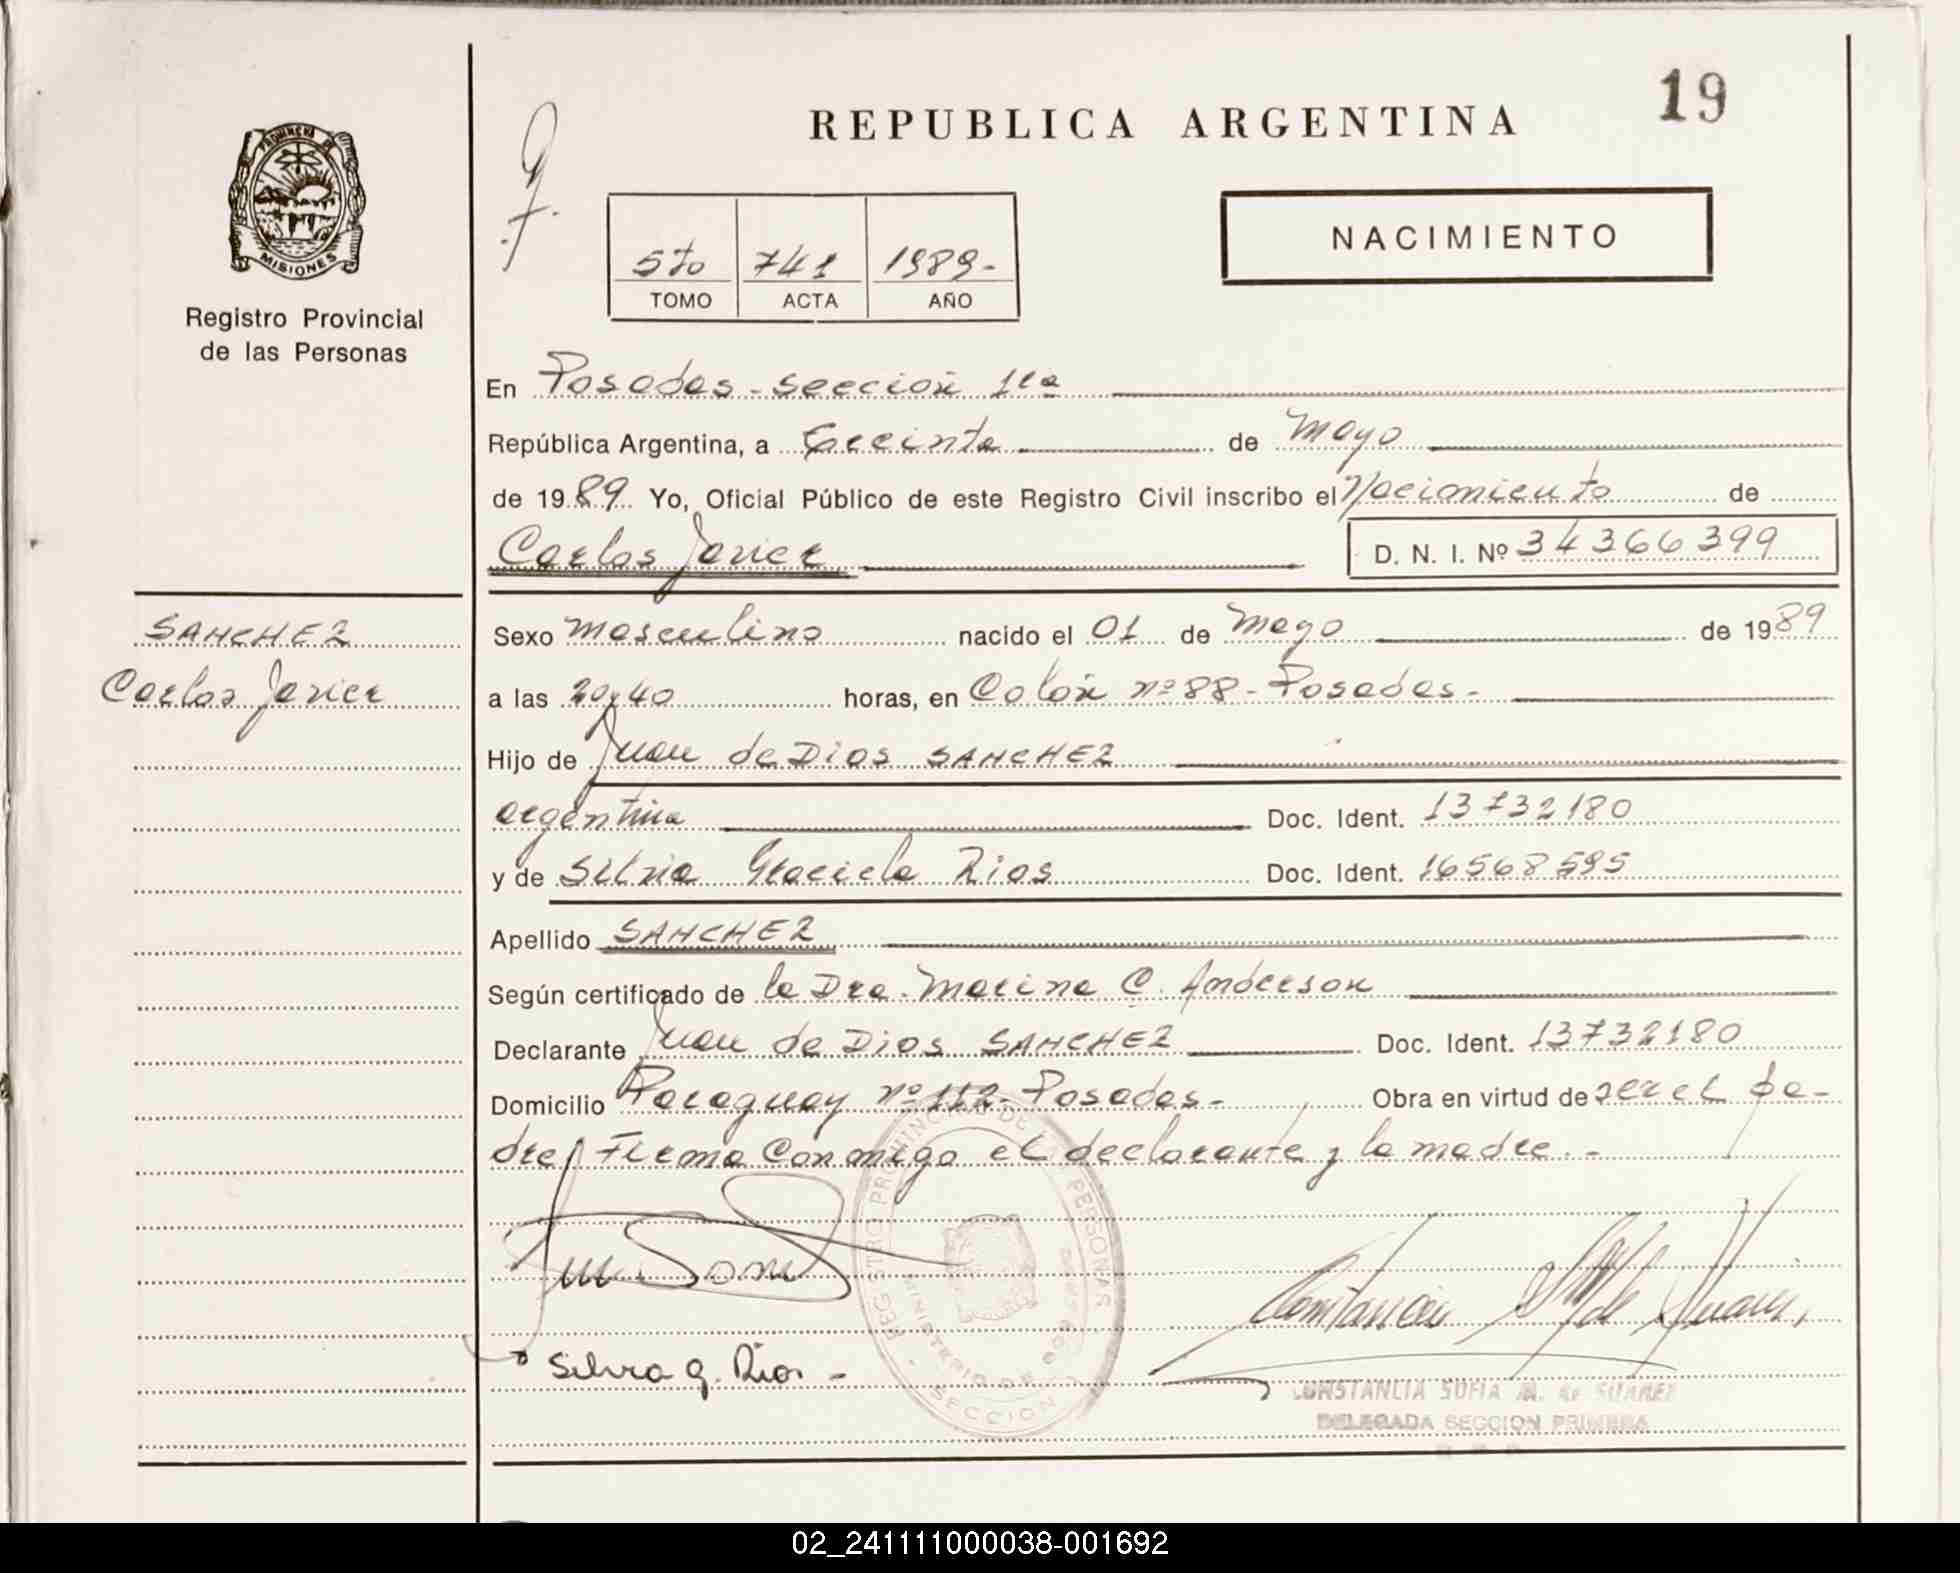 19
REPUBLICA ARGENTINA
PROVINCIA DE
MISIONES
Registro Provincial
de las Personas
NACIMIENTO
5to 741 1989-
TOMO ACTA AÑO
En Posadas - sección 1ra
República Argentina, a treinta de Mayo
de 1989 Yo, Oficial Público de este Registro Civil inscribo el Nacimiento de
Carlos Javier D. N. I. Nº 34366399
SANCHEZ
Carlos Javier
Sexo masculino nacido el 01 de Mayo de 1989
a las 20,40 horas, en Colón nº 88 - Posadas -
Hijo de Juan de Dios SANCHEZ
argentina Doc. Ident. 13732180
y de Silvia Graciela Rios Doc. Ident. 16568595
Apellido SANCHEZ
Según certificado de la Dra. Marina C. Anderson
Declarante Juan de Dios SANCHEZ Doc. Ident. 13732180
Domicilio Paraguay nº 112 - Posadas - Obra en virtud de ser el pa-
dre, Firma Conmigo el declarante y la madre. -
REGISTRO PROVINCIAL DE PERSONAS
MINISTERIO DE GOBIERNO
SECCION 1
Silvia G. Rios -
CONSTANCIA SOFIA M. de SUAREZ
DELEGADA SECCION PRIMERA
02_241111000038-001692